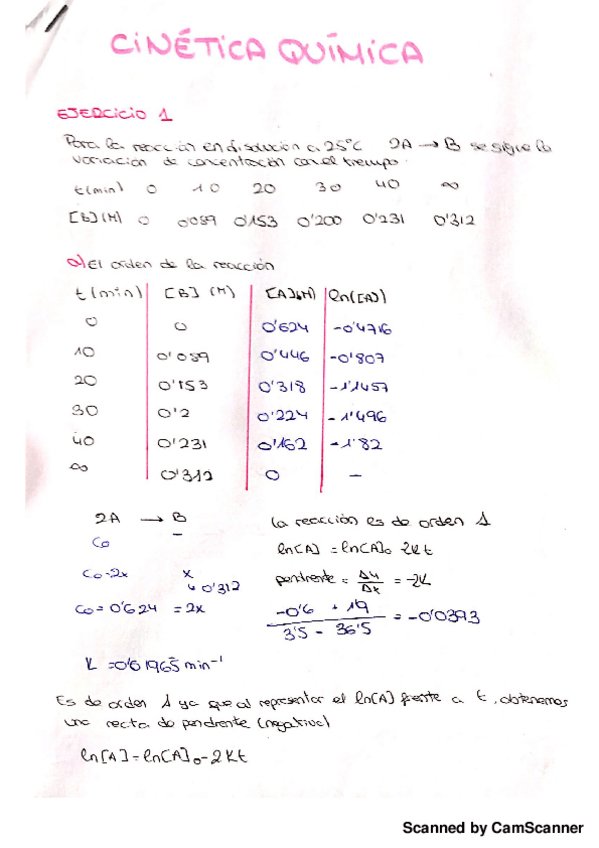 CINÉTICA QUÍMICA
EJERCICIO 1
Para la reacción en disolución a 25ºC 2A → B se sigue la
variación de concentración con el tiempo.
t(min) 0 10 20 30 40 ∞
[B](M) 0 0'089 0'153 0'200 0'231 0'312
a) El orden de la reacción
t(min) [B] (M) [A](M) ln([A])
0 0 0'624 -0'4716
10 0'089 0'446 -0'807
20 0'153 0'318 -1'1457
30 0'2 0'224 -1'496
40 0'231 0'162 -1'82
∞ 0'312 0 -
2A → B
Co -
Co-2x x
↳ 0'312
Co = 0'624 = 2x
K = 0'01965 min⁻¹
La reacción es de orden 1
ln[A] = ln[A]₀ 2Kt
pendiente = Δy/Δx = -2K
-0'6 + 1'9 / 3'5 - 36'5 = -0'0393
Es de orden 1 ya que al representar el ln[A] frente a t, obtenemos
una recta de pendiente (negativa)
ln[A] = ln[A]₀ - 2Kt
Scanned by CamScanner